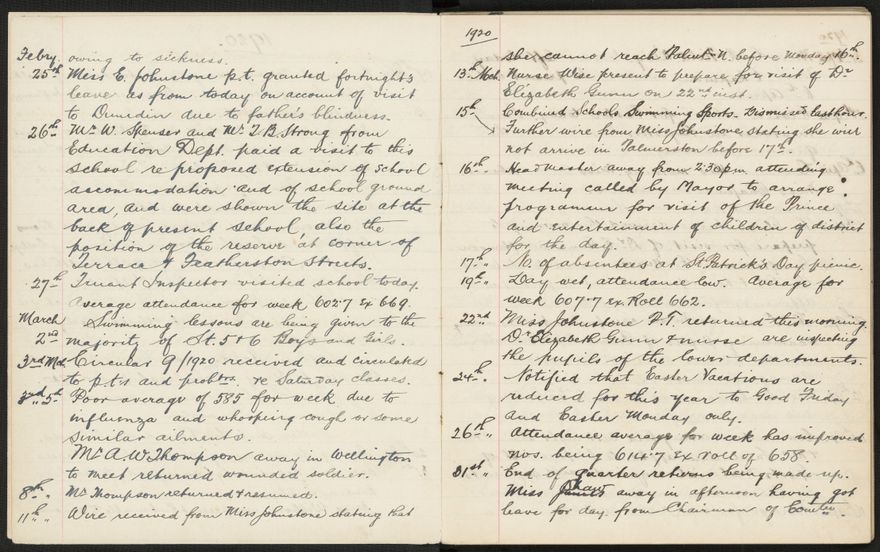 Febry. owing to sickness.
25th Miss E. Johnstone p.t. granted fortnight's
leave as from today on account of visit
to Dunedin due to father's blindness.
26th Mr. W. Spenser and Mr. T.B. Strong from
Education Dept. paid a visit to this
school re proposed extension of school
accommodation and of school ground
area, and were shown the site at the
back of present school, also the
position of the reserve at corner of
Terrace & Featherston Streets.
27th Truant Inspector visited school today.
Average attendance for week 602.7 Ex 669.
March Swimming lessons are being given to the
2nd majority of St. 5 & 6 Boys and Girls.
3rd Mch Circular 9/1920 received and circulated
to p.t's and probtrs. re Saturday classes.
5th Poor average of 585 for week due to
influenza and whooping cough or some
similar ailments.
Mr. A. W. Thompson away in Wellington
to meet returned wounded soldier.
8th " Mr Thompson returned & resumed.
11th " Wire received from Miss Johnstone stating that
1920
she cannot reach Palmt. N. before Monday 16th.
13th Mch. Nurse Wise present to prepare for visit of Dr
Elizabeth Gunn on 22nd inst.
15th Combined Schools Swimming Sports. Dismissed last hour.
Further wire from Miss Johnstone stating she will
not arrive in Palmerston before 17th.
16th Head Master away from 2.30 p.m. attending
meeting called by Mayor to arrange
programme for visit of the Prince
and entertainment of children of district
for the day.
17th " No. of absentees at St Patrick's Day picnic.
19th " Day wet, attendance low. Average for
week 607.7 ex. Roll 662.
22nd Miss Johnstone P.T. returned this morning.
Dr Elizabeth Gunn & nurse are inspecting
the pupils of the lower departments.
24th . Notified that Easter Vacations are
reduced for this year to Good Friday
and Easter Monday only.
26th " Attendance average for week has improved
nos. being 614.7 Ex roll of 658
31st " End of quarter returns being made up.
Miss Shaw away in afternoon having got
leave for day from Chairman of Comtee.